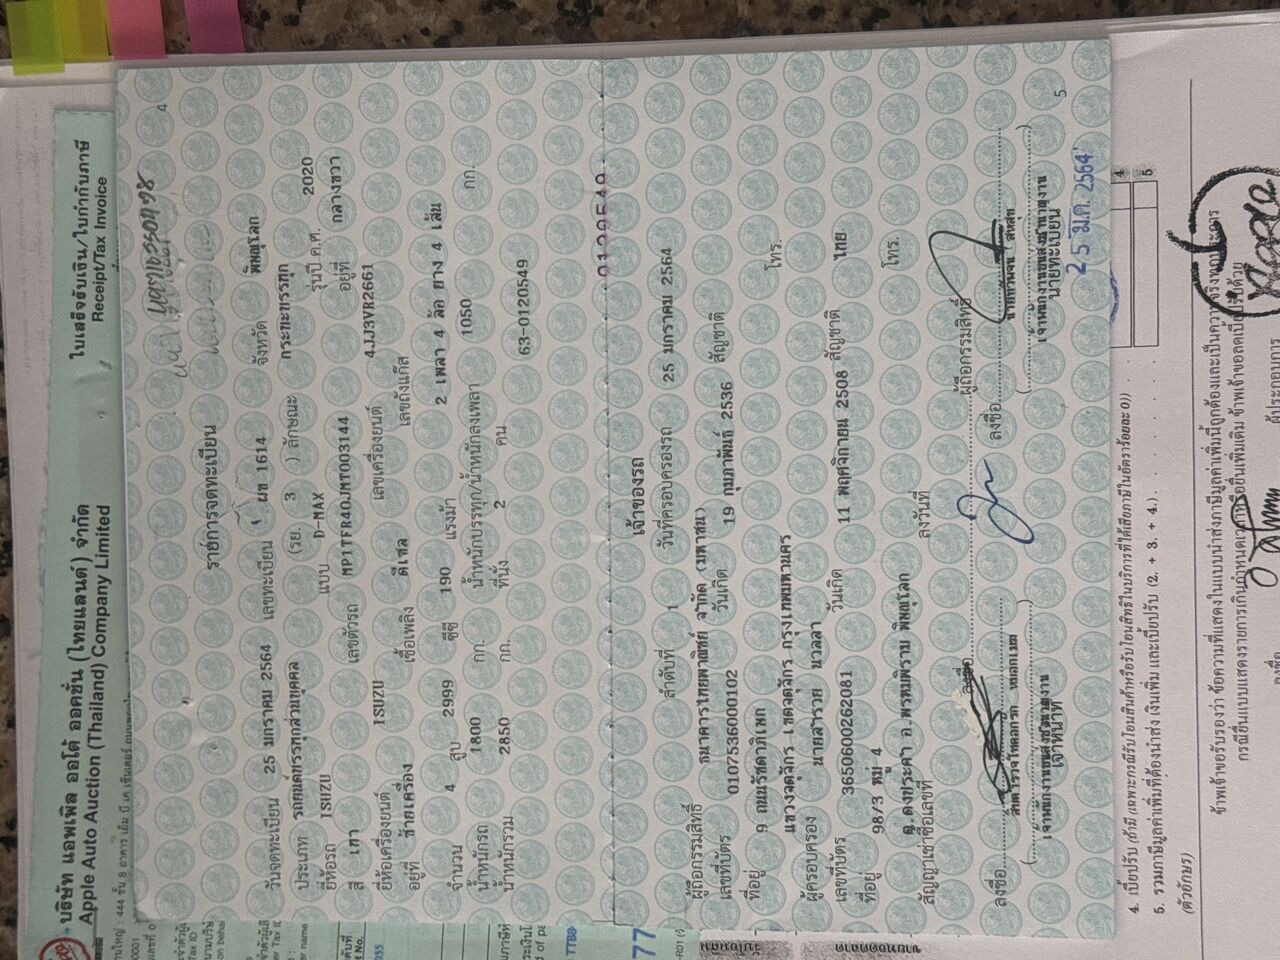 บริษัท แอพเพิล ออโต้ ออคชั่น (ไทยแลนด์) จำกัด
Apple Auto Auction (Thailand) Company Limited
ใบเสร็จรับเงิน/ใบกำกับภาษี
Receipt/Tax Invoice
4
รายการจดทะเบียน
วันจดทะเบียน 25 มกราคม 2564 เลขทะเบียน ผข 1614 จังหวัด พิษณุโลก
ประเภท รถยนต์บรรทุกส่วนบุคคล (รย. 3 ) ลักษณะ กระบะบรรทุก
ยี่ห้อรถ ISUZU แบบ D-MAX รุ่นปี ค.ศ. 2020
สี เทา เลขตัวรถ MP1TFR40JMT003144 อยู่ที่ กลางขวา
ยี่ห้อเครื่องยนต์ ISUZU เลขเครื่องยนต์ 4JJ3VR2661
อยู่ที่ ซ้ายเครื่อง เชื้อเพลิง ดีเซล เลขถังแก๊ส
จำนวน 4 สูบ 2999 ซีซี 190 แรงม้า 2 เพลา 4 ล้อ ยาง 4 เส้น
น้ำหนักรถ 1800 กก. น้ำหนักบรรทุก/น้ำหนักลงเพลา 1050 กก.
น้ำหนักรวม 2850 กก. ที่นั่ง 2 คน 63-0120549
0120549
เจ้าของรถ
ลำดับที่ 1 วันที่ครอบครองรถ 25 มกราคม 2564
ผู้ถือกรรมสิทธิ์ ธนาคารไทยพาณิชย์ จำกัด (มหาชน)
เลขที่บัตร 0107536000102 วันเกิด 19 กุมภาพันธ์ 2536 สัญชาติ
ที่อยู่ 9 ถนนรัชดาภิเษก โทร.
แขวงจตุจักร เขตจตุจักร กรุงเทพมหานคร
ผู้ครอบครอง นายสำรวย นวลล่า
เลขที่บัตร 3650600262081 วันเกิด 11 พฤศจิกายน 2508 สัญชาติ ไทย
ที่อยู่ 98/3 หมู่ 4 โทร.
ต.ดงประคำ อ.พรหมพิราม พิษณุโลก
สัญญาเช่าซื้อเลขที่ ลงวันที่
ลงชื่อ ผู้ถือกรรมสิทธิ์
ลงชื่อ ลงชื่อ
เจ้าพนักงานขนส่งชำนาญงาน
เจ้าหน้าที่ นายทะเบียน
25 ม.ค. 2564
5
4. เบี้ยปรับ (ถ้ามี (เฉพาะกรณีรับโอนสินค้าหรือรับโอนสิทธิในบริการที่ได้เสียภาษีในอัตราร้อยละ 0)) 4
5. รวมภาษีมูลค่าเพิ่มที่ต้องนำส่ง เงินเพิ่ม และเบี้ยปรับ (2. + 3. + 4.) 5
(ตัวอักษร)
77